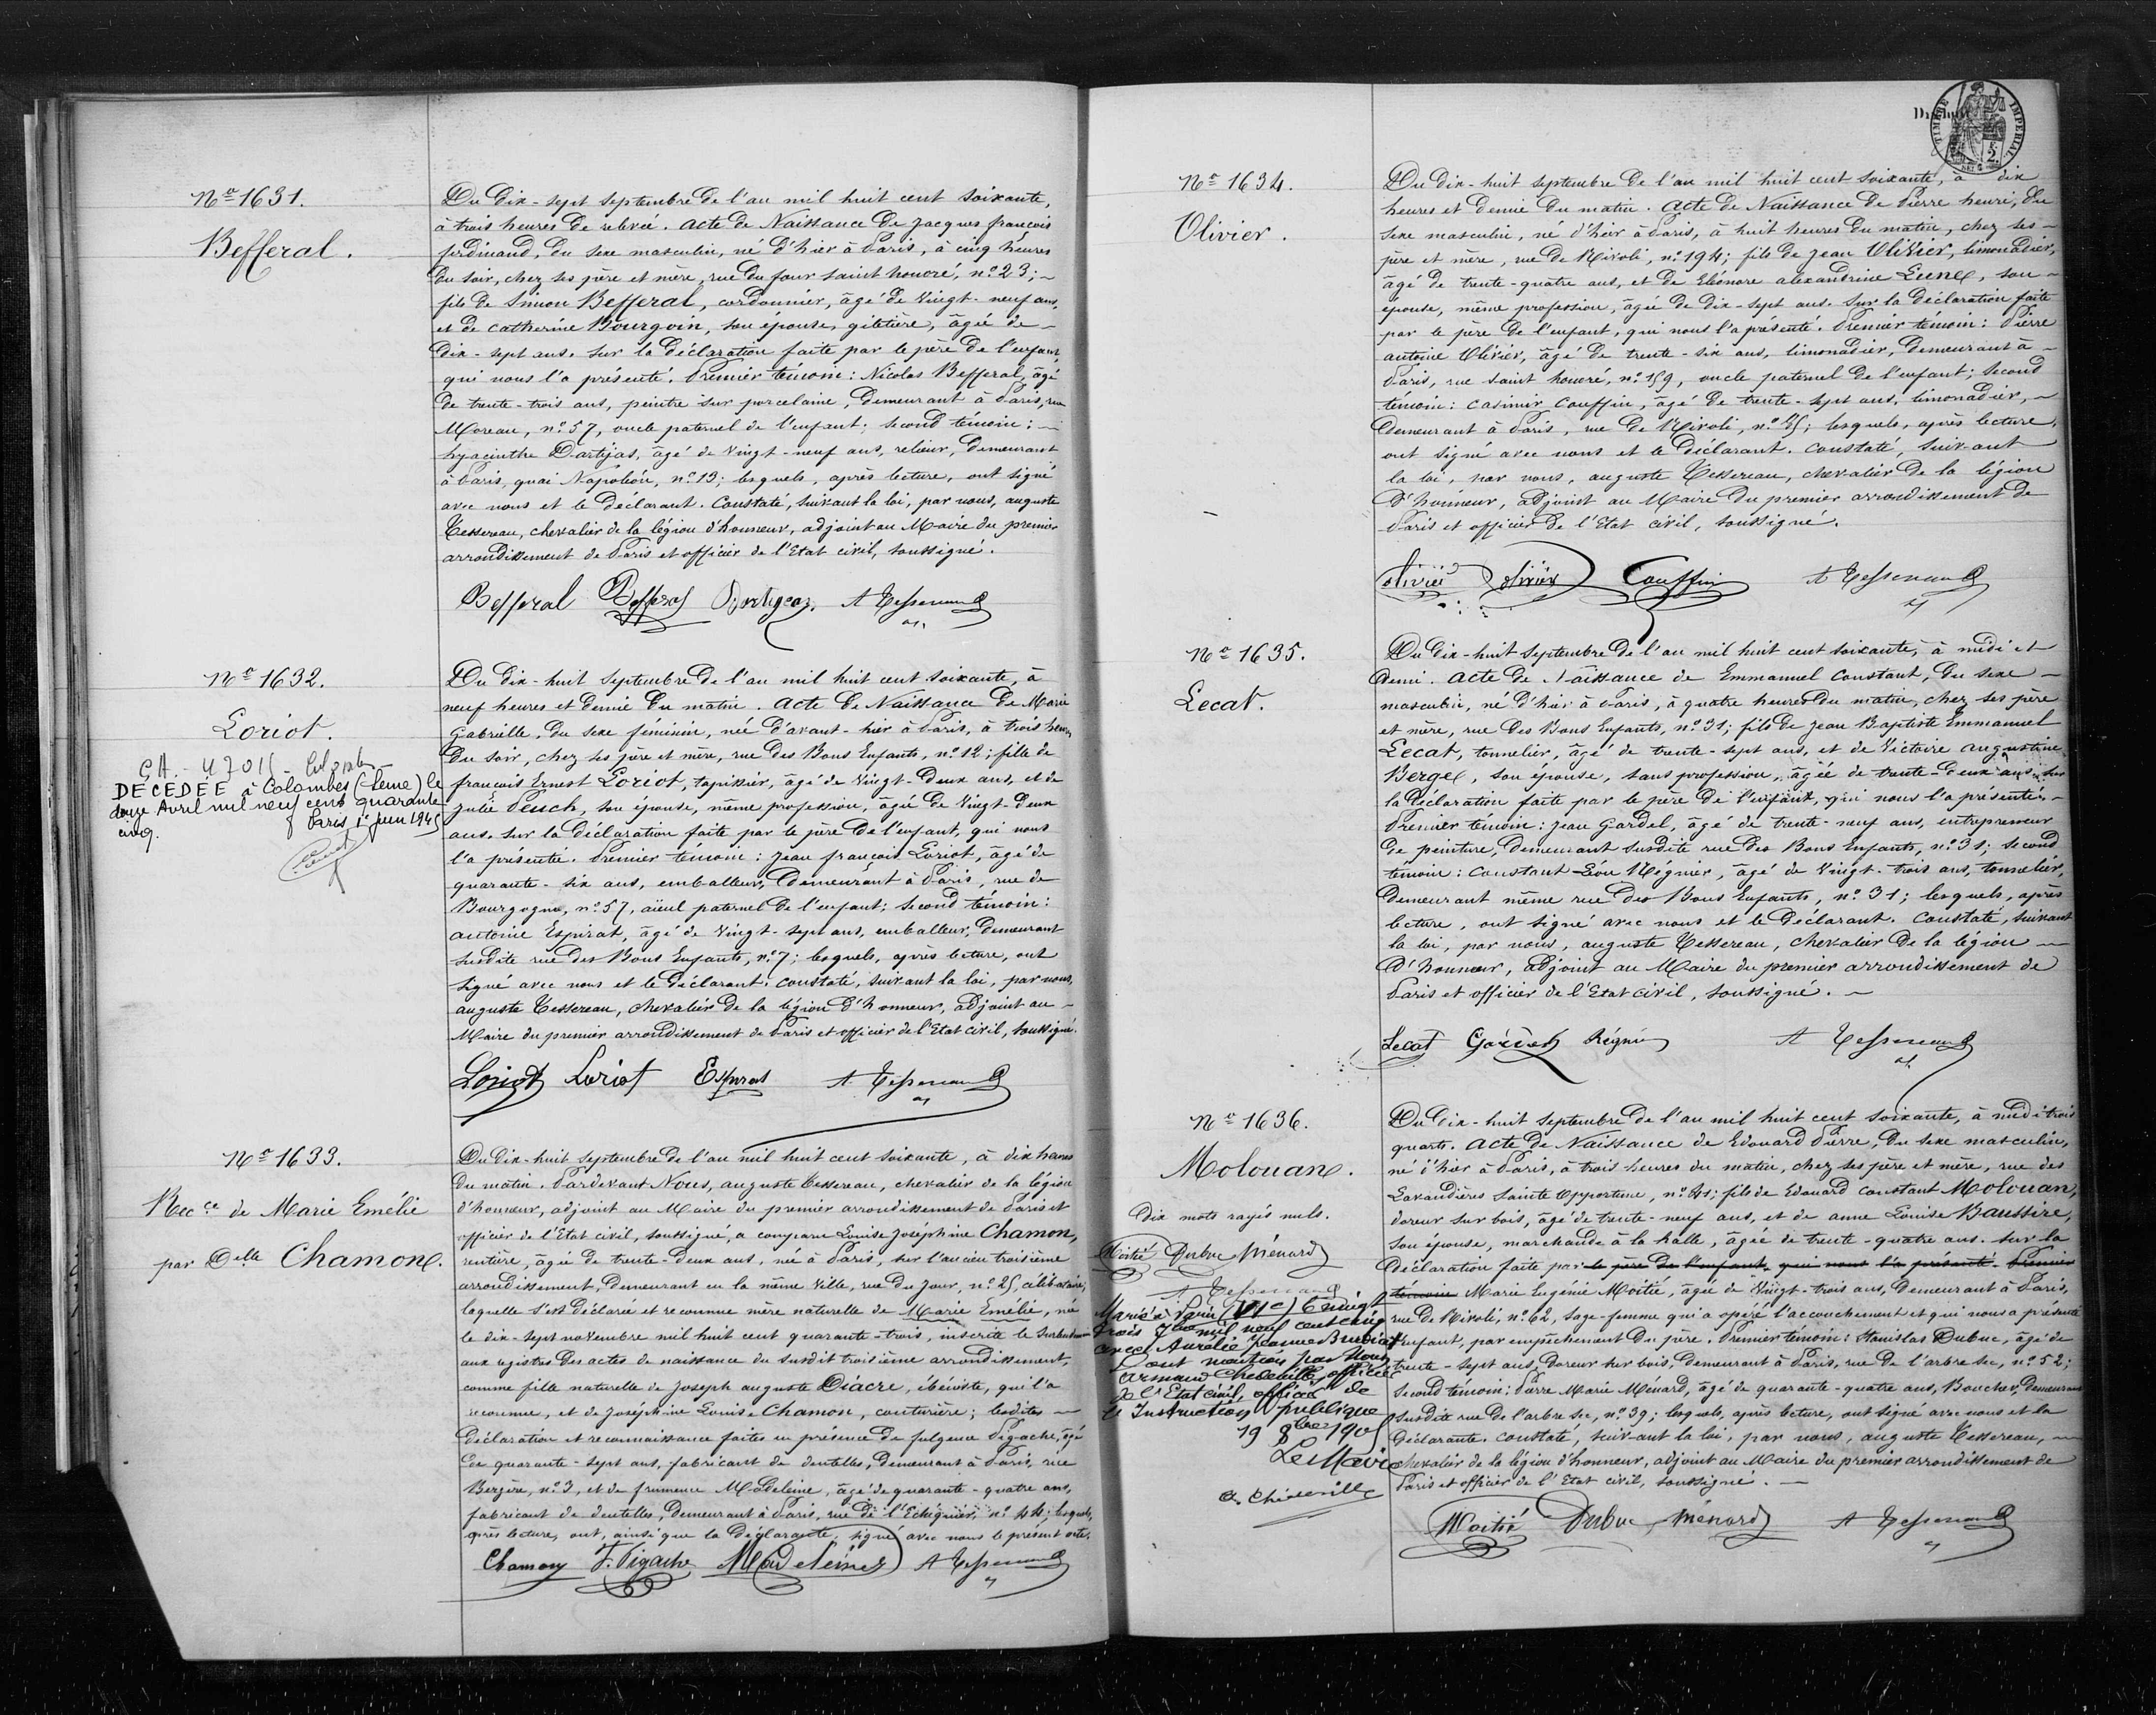 Nº 1631.
Befferal.
Du dix-sept septembre de l'an mil huit cent soixante,
à trois heures de relevée. Acte de Naissance de Jacques françois
ferdinand, du sexe masculin, né d'hier à Paris, à cinq heures
du soir, chez ses père et mère, rue du four saint honoré, nº 23;
fils de Simon Befferal, cordonnier, âgé de vingt-neuf ans,
et de Catherine Bourgoin, son épouse, giletière, âgée de
dix-sept ans. Sur la déclaration faite par le père de l'enfant,
qui nous l'a présenté. Premier témoin: Nicolas Befferal, âgé
de trente-trois ans, peintre sur porcelaine, demeurant à Paris, rue
Moreau, nº 57, oncle paternel de l'enfant; second témoin:
hyacinthe Dartijas, âgé de vingt-neuf ans, relieur, demeurant
à Paris, quai Napoléon, nº 13; lesquels, après lecture, ont signé
avec nous et le déclarant. Constaté, suivant la loi, par nous, auguste
Tessereau, chevalier de la légion d'honneur, adjoint au Maire du premier
arrondissement de Paris et officier de l'Etat civil, soussigné.
Befferal Befferal A Tessereau
Nº 1632.
Loriot.
DÉCÉDÉE à Colombes (Seine) le
douze Avril mil neuf cent quarante
cinq. Paris 1er Juin 1945
Du dix-huit septembre de l'an mil huit cent soixante, à
neuf heures et demie du matin. Acte de Naissance de Marie
Gabrielle, du sexe féminin, née d'avant-hier à Paris, à trois heures
du soir, chez ses père et mère, rue des Bons Enfants, nº 12; fille de
françois Ernest Loriot, tapissier, âgé de vingt-deux ans, et de
Julie Peuch, son épouse, même profession, âgée de vingt-deux
ans. Sur la déclaration faite par le père de l'enfant, qui nous
l'a présenté. Premier témoin: Jean françois Loriot, âgé de
quarante-six ans, emballeur, demeurant à Paris, rue de
Bourgogne, nº 57, aïeul paternel de l'enfant; second témoin:
antoine Espirat, âgé de vingt-sept ans, emballeur, demeurant
susdite rue des Bons Enfants, nº 7; lesquels, après lecture, ont
signé avec nous et le déclarant. Constaté, suivant la loi, par nous,
auguste Tessereau, chevalier de la légion d'honneur, adjoint au
Maire du premier arrondissement de Paris et officier de l'Etat civil, soussigné.
Loriot Loriot Espirat A Tessereau
Nº 1633.
Recce de Marie Emélie
par Delle Chamon.
Du dix-huit septembre de l'an mil huit cent soixante, à dix heures
du matin. Pardevant Nous, auguste Tessereau, chevalier de la légion
d'honneur, adjoint au Maire du premier arrondissement de Paris et
officier de l'Etat civil, soussigné, a comparu Louise Joséphine Chamon,
rentière, âgée de trente-deux ans, née à Paris, sur l'ancien troisième
arrondissement, demeurant en la même ville, rue du Jour, nº 25, célibataire;
laquelle s'est déclarée et reconnue mère naturelle de Marie Emélie, née
le dix-sept novembre mil huit cent quarante-trois, inscrite le surlendemain
aux registres des actes de naissance du susdit troisième arrondissement,
comme fille naturelle de Joseph auguste Diacre, ébéniste, qui l'a
reconnue, et de Joséphine Louise Chamon, couturière; lesdites
déclaration et reconnaissance faites en présence de fulgence Pigache, âgé
de quarante-sept ans, fabricant de dentelles, demeurant à Paris, rue
Bergère, nº 3, et de frumence Madeleine, âgé de quarante-quatre ans,
fabricant de dentelles, demeurant à Paris, rue de l'Echiquier, nº 44; lesquels,
après lecture, ont, ainsi que la déclarante, signé avec nous le présent acte.
Chamon F. Pigache Madeleine A Tessereau
TIMBRE IMPERIAL
Nº 1634.
Olivier.
Du dix-huit septembre de l'an mil huit cent soixante, à dix
heures et demie du matin. Acte de Naissance de Pierre henri, du
sexe masculin, né d'hier à Paris, à huit heures du matin, chez ses
père et mère, rue de Rivoli, nº 194; fils de Jean Olivier, limonadier,
âgé de trente-quatre ans, et de Eléonore alexandrine Lune, son
épouse, même profession, âgée de dix-sept ans. Sur la déclaration faite
par le père de l'enfant, qui nous l'a présenté. Premier témoin: Pierre
antoine Olivier, âgé de trente-six ans, limonadier, demeurant à
Paris, rue saint honoré, nº 159, oncle paternel de l'enfant; second
témoin: Casimir Couffin, âgé de trente-sept ans, limonadier,
demeurant à Paris, rue de Rivoli, lesquels, après lecture,
ont signé avec nous et le déclarant. Constaté, suivant
la loi, par nous, auguste Tessereau, chevalier de la légion
d'honneur, adjoint au Maire du premier arrondissement de
Paris et officier de l'Etat civil, soussigné.
Olivier Olivier Couffin A Tessereau
Nº 1635.
Lecat.
Du dix-huit septembre de l'an mil huit cent soixante, à midi et
demi. Acte de Naissance de Emmanuel Constant, du sexe
masculin, né d'hier à Paris, à quatre heures du matin, chez ses père
et mère, rue des Bons Enfants, nº 31; fils de Jean Baptiste Emmanuel
Lecat, tonnelier, âgé de trente-sept ans, et de Victoire augustine
Berge, son épouse, sans profession, âgée de trente-deux ans. Sur
la déclaration faite par le père de l'enfant, qui nous l'a présenté.
Premier témoin: Jean Gardel, âgé de trente-neuf ans, entrepreneur
de peinture, demeurant susdite rue des Bons Enfants, nº 31; second
témoin: Constant Léon Régnier, âgé de vingt-trois ans, tonnelier,
demeurant même rue des Bons Enfants, nº 31; lesquels, après
lecture, ont signé avec nous et le déclarant. Constaté, suivant
la loi, par nous, auguste Tessereau, chevalier de la légion
d'honneur, adjoint au Maire du premier arrondissement de
Paris et officier de l'Etat civil, soussigné.
Lecat Gardel Régnier A Tessereau
Nº 1636.
Molouan.
Dix mots rayés nuls.
Moitié Dubuc Ménard
A Tessereau
Marié à
trois mil neuf cent cinq
avec Aurélie Jeanne
Dont mention par Nous
Armand Chédeville, officier
de l'Etat civil, officier de
l'Instruction publique
19 8bre 1905
Le Maire
A. Chédeville
Du dix-huit septembre de l'an mil huit cent soixante, à midi trois
quarts. Acte de Naissance de Edouard Pierre, du sexe masculin,
né d'hier à Paris, à trois heures du matin, chez ses père et mère, rue des
Lavandières Sainte Opportune, fils de Edouard Constant Molouan,
doreur sur bois, âgé de trente-neuf ans, et de anne Louise Baussire,
son épouse, marchande à la halle, âgée de trente-quatre ans. Sur la
déclaration faite par le père de l'enfant, qui nous l'a présenté. Premier
témoin Marie Eugénie Moitié, âgée de vingt-trois ans, demeurant à Paris,
rue de Rivoli, nº 62, sage-femme qui a opéré l'accouchement et qui nous a présenté
l'enfant, par empêchement du père. Premier témoin: Stanislas Dubuc, âgé de
trente-sept ans, doreur sur bois, demeurant à Paris, rue de l'arbre sec, nº 52;
second témoin: Pierre Marie Ménard, âgé de quarante-quatre ans, Boucher, demeurant
susdite rue de l'arbre sec, nº 39; lesquels, après lecture, ont signé avec nous et la
déclarante. Constaté, suivant la loi, par nous, auguste Tessereau,
chevalier de la légion d'honneur, adjoint au Maire du premier arrondissement de
Paris et officier de l'Etat civil, soussigné.
Moitié Dubuc Ménard A Tessereau